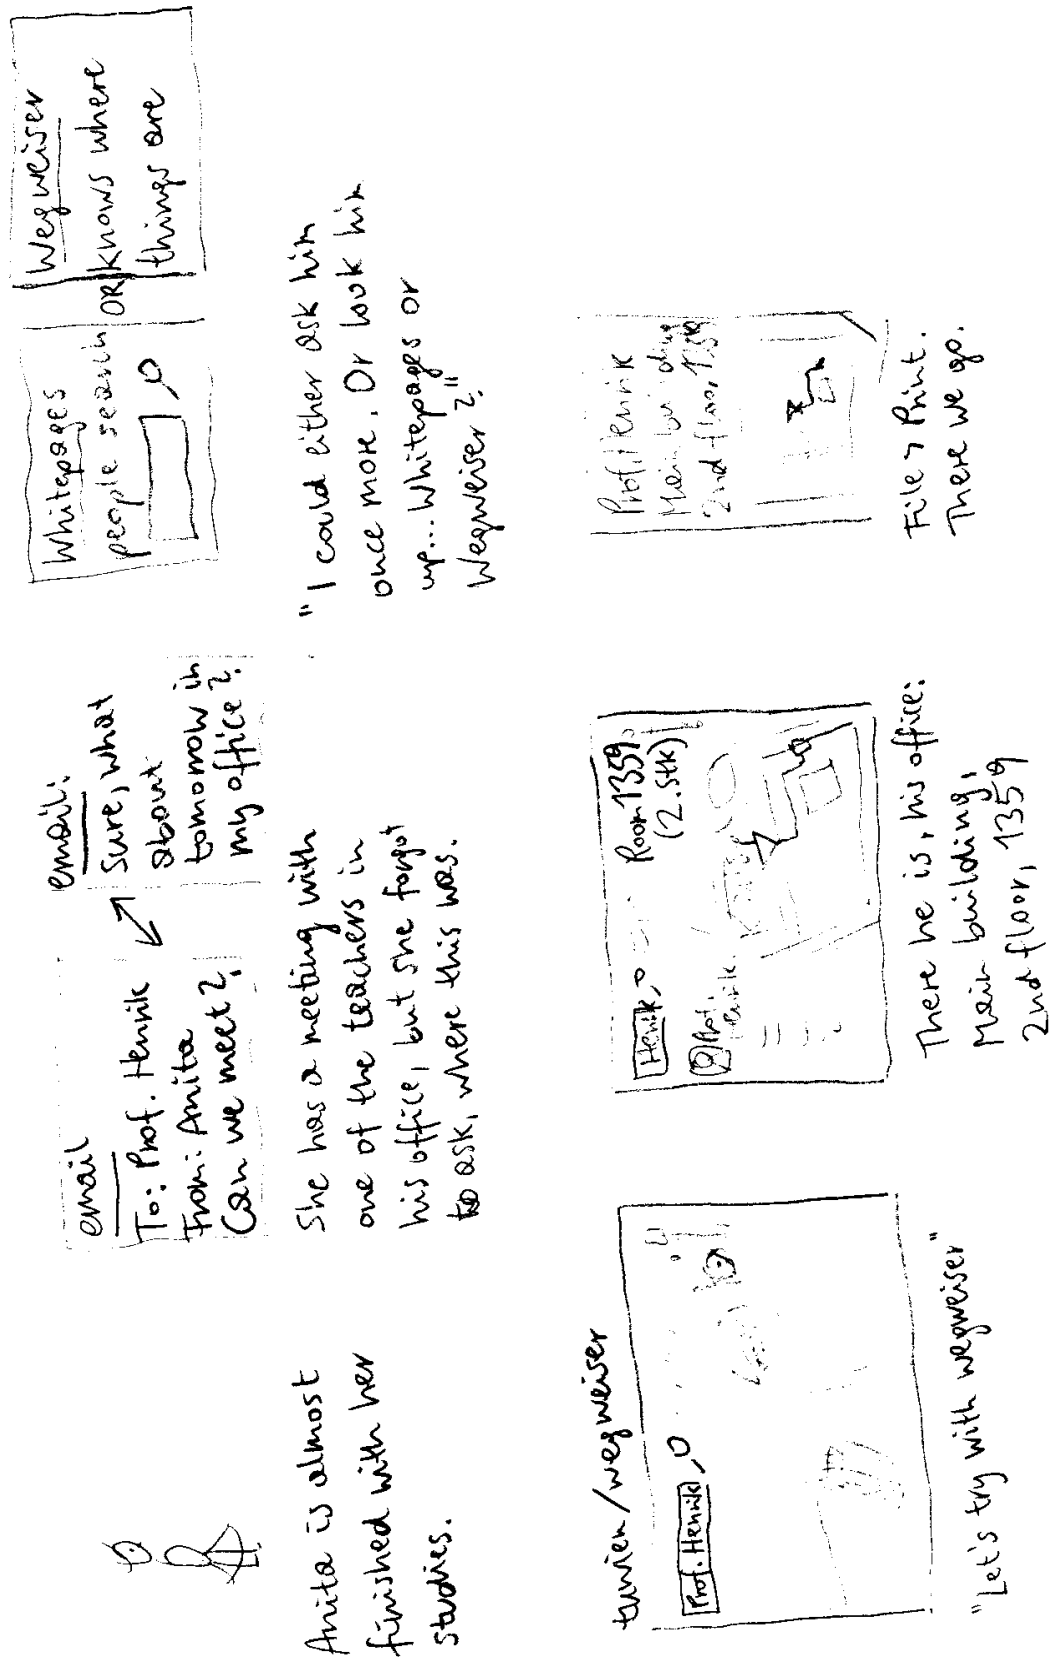 Anita is almost
finished with her
studies.
email
To: Prof. Henrik
From: Anita
Can we meet?
email:
Sure, what
about
tomorrow in
my office?
She has a meeting with
one of the teachers in
his office, but she forgot
to ask, where this was.
Whitepages
people search
OR
Wegweiser
knows where
things are
"I could either ask him
once more. Or look him
up... Whitepages or
Wegweiser?"
tuwien/wegweiser
Prof. Henrik
"Let's try with wegweiser"
Henrik
Room 1359
(2. Stk)
Prof.
Henrik
There he is, his office:
Main building,
2nd floor, 1359
Prof Henrik
Main building
2nd floor, 1359
File > Print.
There we go.